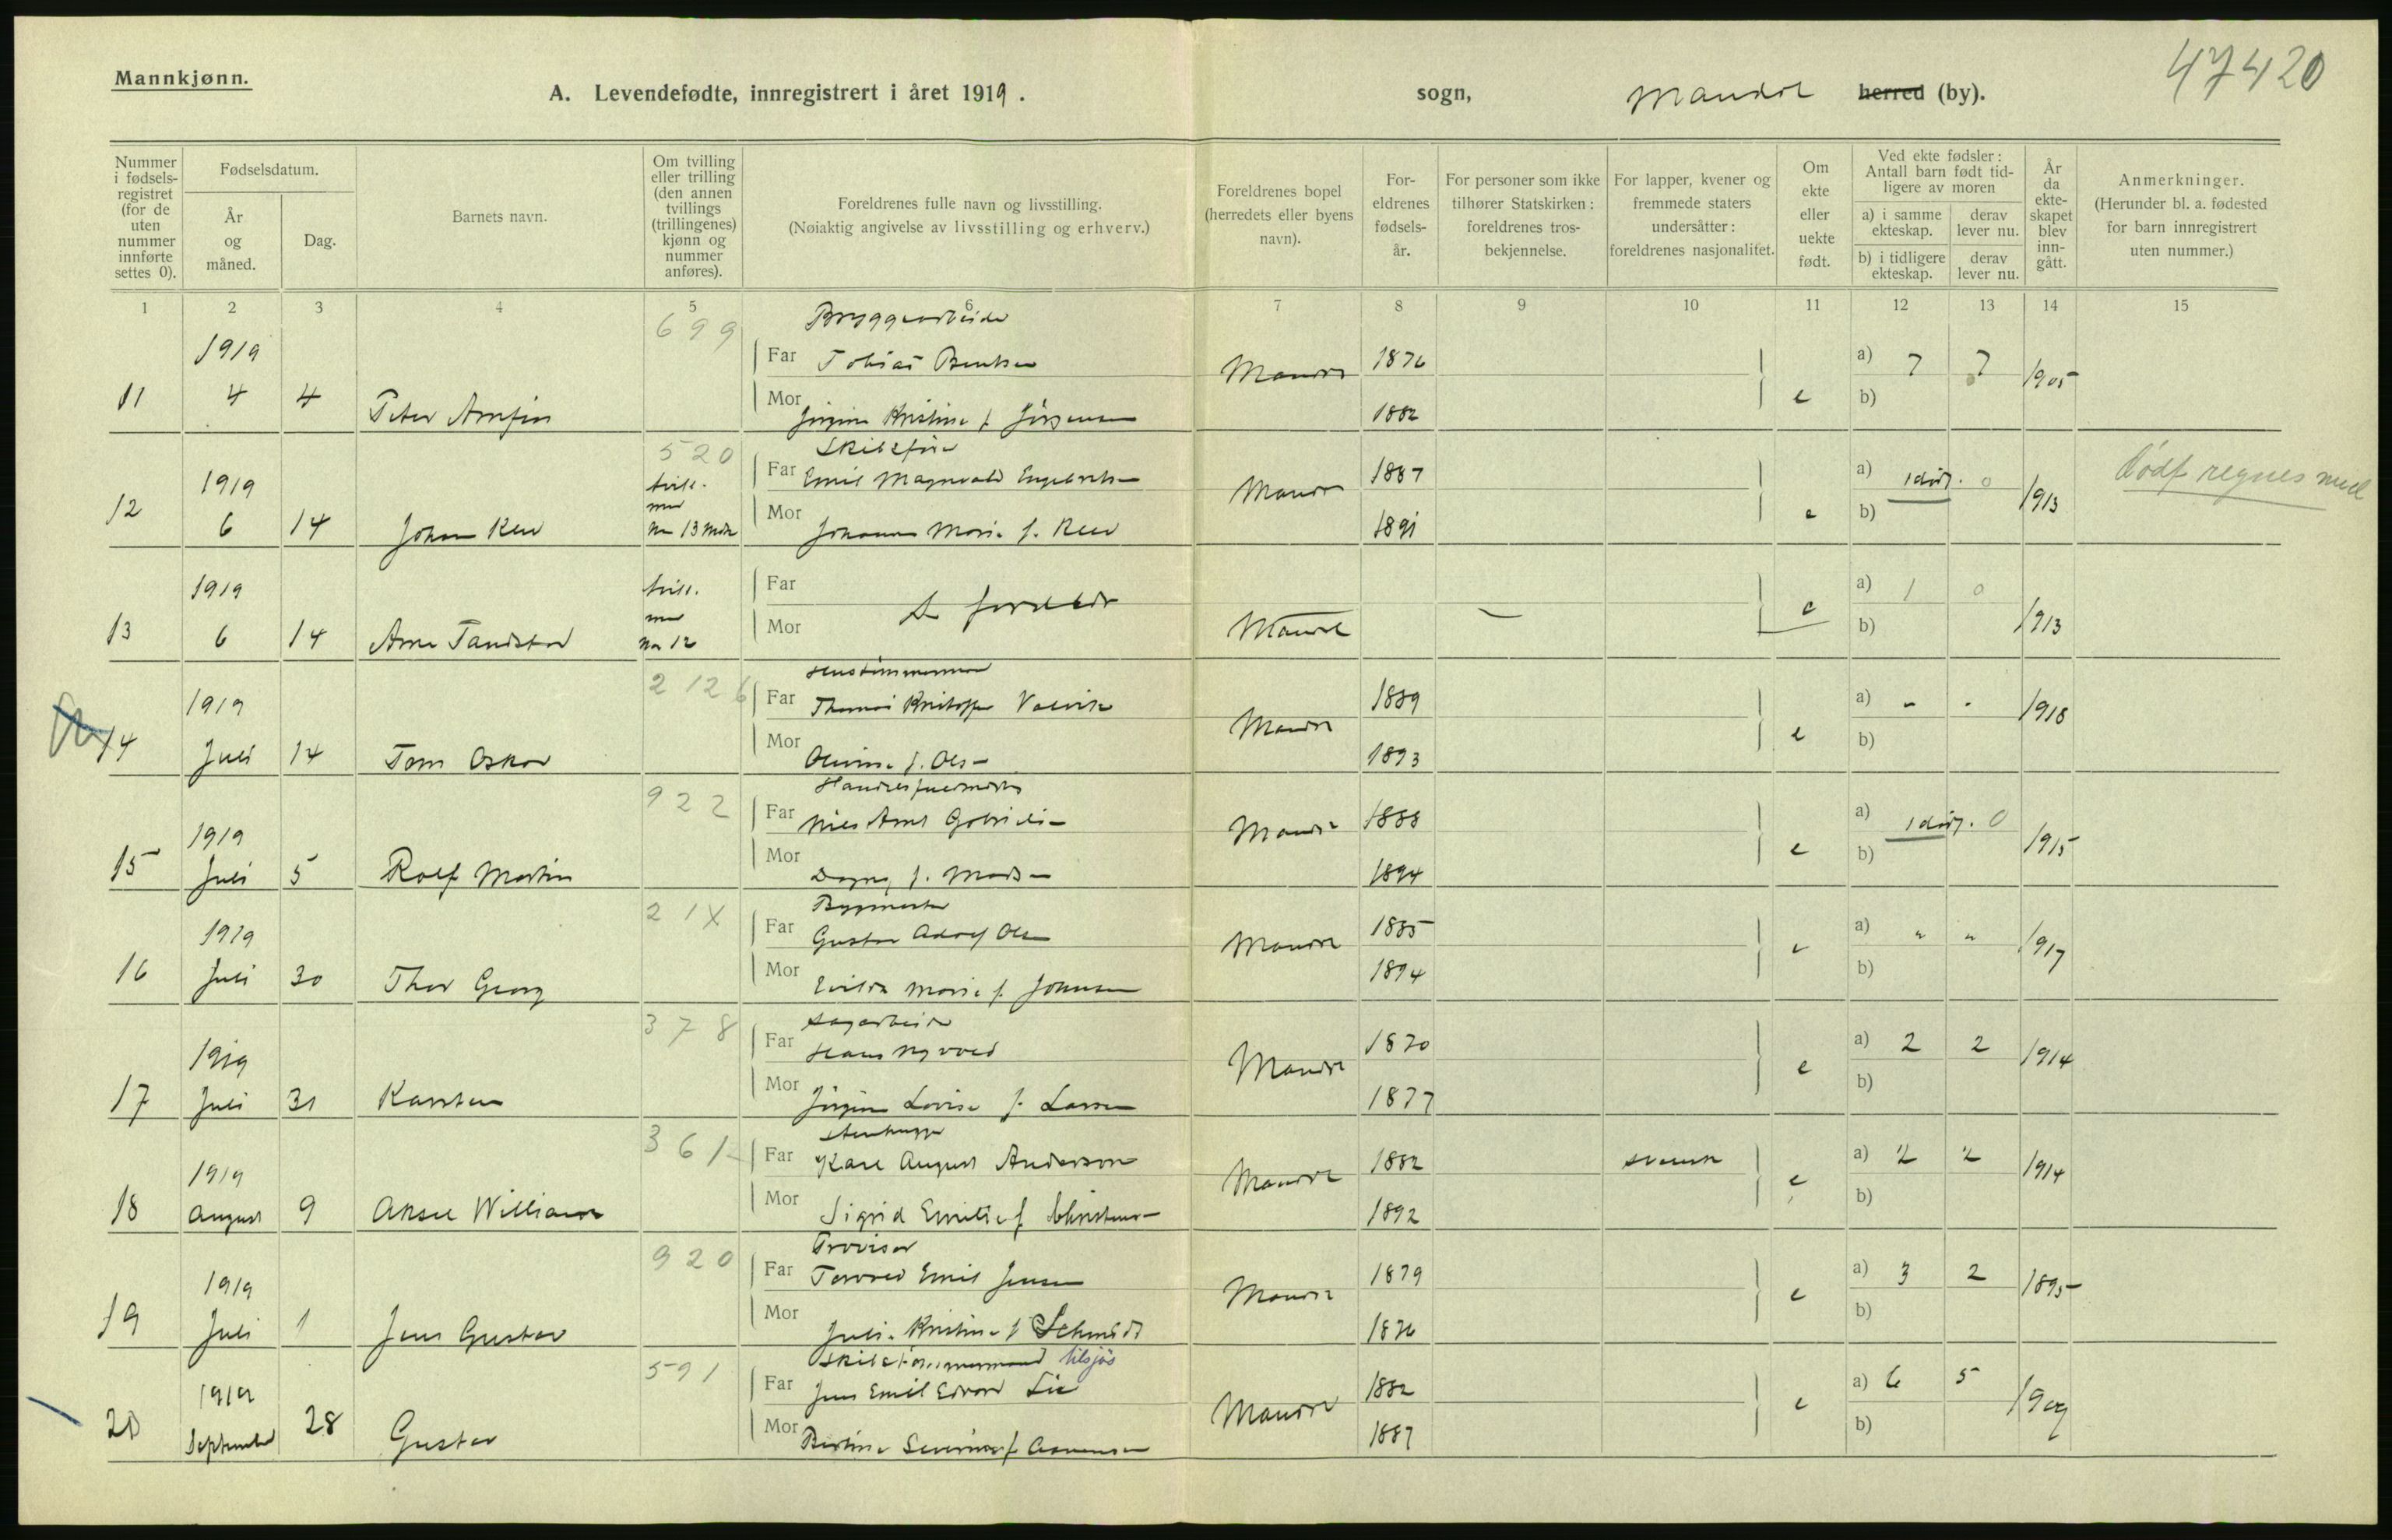 Mannkjønn.
A. Levendefødte, innregistrert i året 1919.
sogn, Mandal herred (by).
47420
Nummer i fødsels-registret (for de uten nummer innførte settes 0).
Fødselsdatum.
År og måned.
Dag.
Barnets navn.
Om tvilling eller trilling (den annen tvillings (trillingenes) kjønn og nummer anføres).
Foreldrenes fulle navn og livsstilling.
(Nøiaktig angivelse av livsstilling og erhverv.)
Foreldrenes bopel (herredets eller byens navn).
For-eldrenes fødsels-år.
For personer som ikke tilhører Statskirken: foreldrenes tros-bekjennelse.
For lapper, kvener og fremmede staters undersåtter: foreldrenes nasjonalitet.
Om ekte eller uekte født.
Ved ekte fødsler: Antall barn født tid-ligere av moren
a) i samme ekteskap.
derav lever nu.
b) i tidligere ekteskap.
derav lever nu.
År da ekte-skapet blev inn-gått.
Anmerkninger.
(Herunder bl. a. fødested for barn innregistrert uten nummer.)
1 2 3 4 5 6 7 8 9 10 11 12 13 14 15
699 Bryggearbeider
1919 Far Tobias Bentsen 1876 a) 7 7
11 4 4 Peter Arnfin Mor Jørgine Kristine f. Jørgensen Mandal 1882 e b) 1905
520
1919 tvill. Far Emil Magnvald Engebretsen 1887 a) 1 dødf. 0 Dødf regnes med
12 6 14 Johan Kew med No 13 Mor Johanne Marie f. Kew Mandal 1891 e b) 1913
1919 tvill. Far De foreldre a) 1 0
13 6 14 Arne Tandstad med No 12 Mor Mandal e b) 1913
2126 Hustømmermand
1919 Far Thomas Kristoffer Valvik 1889 a) - -
14 Juli 14 Tom Oskar Mor f. Olsen Mandal 1893 e b) 1918
922
1919 Far Nils Arnt Gabrielsen 1888 a) 1 dødf. 0
15 Juli 5 Rolf Martin Mor Dagny f. Madsen Mandal 1894 e b) 1915
21X Bygmester
1919 Far Gustav Adolf Olsen 1885 a) " "
16 Juli 30 Thor Georg Mor Marie f. Johnsen Mandal 1894 e b) 1917
378 Sagarbeider
1919 Far Hans 1870 a) 2 2
17 Juli 31 Karsten Mor Jørgine Lovise f. Larsen Mandal 1877 e b) 1914
361 Stenhugger
1919 Far Karl August Anderson 1882 svensk a) 2 2
18 August 9 Aksel William Mor Sigrid Emilie f. Christensen Mandal 1892 e b) 1914
920 Provisor
1919 Far Torvald Emil Jensen 1879 a) 3 2
19 Juli 1 Jens Gustav Mor Julie Kristine f. Schmidt Mandal 1876 e b) 1895
591 Skibstømmermand tilsjøs
1919 Far Jens Emil Edvard Lie 1882 a) 6 5
20 September 28 Gustav Mor Bertine Severine f. Mandal 1887 e b) 1907